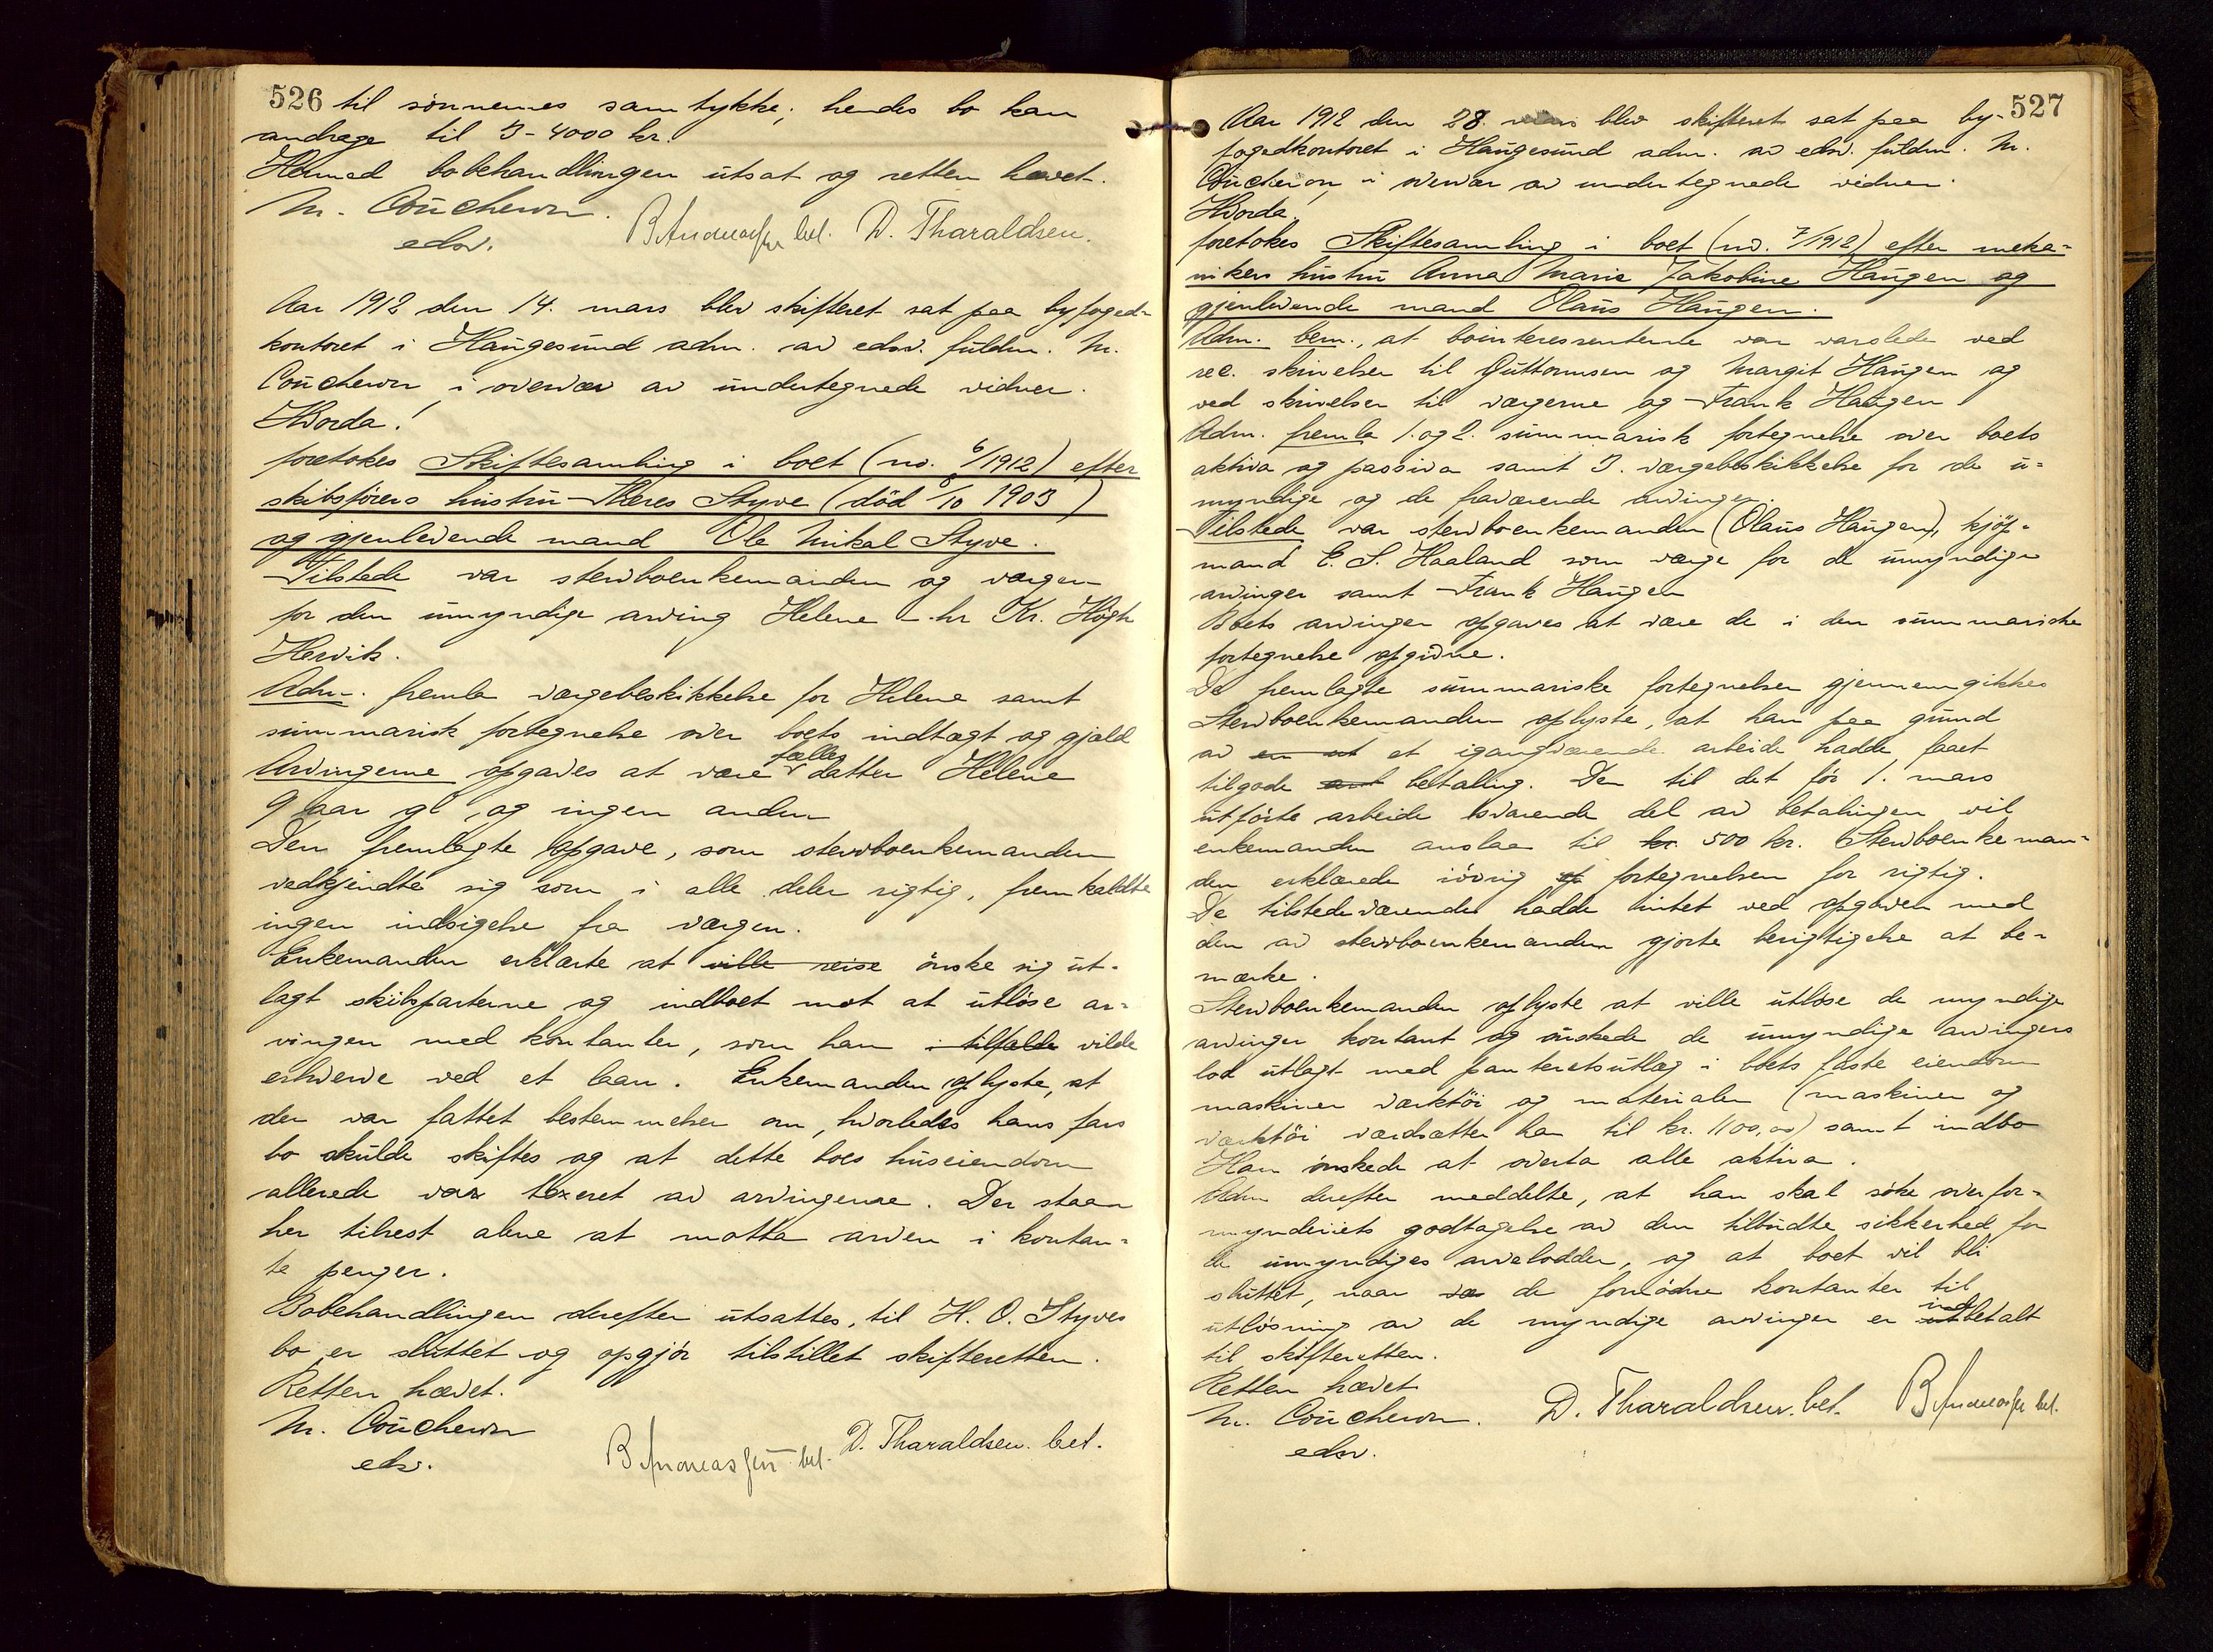 526 til sönnernes samtykke; hendes bo kan
andrage til 3-4000 kr.
Hermed bobehandlingen utsat og retten hævet.
M. Coucheron.
edsv.
B Andreassen bet. D. Tharaldsen.
Aar 1912 den 14. mars blev skifteret sat paa byfoged-
kontoret i Haugesund adm. av edsv. fuldm. M.
Coucheron i overvær av undertegnede vidner.
Hvorda!
foretokes Skiftesamling i boet (no. 6/1912) efter
skibsförers hustru Theres Styve (död 8/10 1903)
og gjenlevende mand Ole Mikal Styve.
Tilstede var stervboenkemanden og værgen
for den umyndige arving Helene - hr Kr. Högh
Hervik.
Adm. fremla værgebeskikkelse for Helene samt
summarisk fortegnelse over boets indtægt og gjæld
Arvingerne opgaves at være fælles datter Helene
9 aar gl, og ingen anden
Den fremlagte opgave, som stervboenkemanden
vedkjendte sig som i alle deler rigtig, fremkaldte
ingen indsigelse fra værgen.
Enkemanden erklærte at ville reise önske sig ut-
lagt skibsparterne og indboet mot at utlöse ar-
vingen med kontanter, som han i tilfælde vilde
erhverve ved et laan. Enkemanden oplyste, at
der var fattet bestemmelser om, hvorledes hans fars
bo skulde skiftes og at dette boes huseiendom
allerede var taxeret av arvingerne. Der staar
her tilrest alene at motta arven i kontan-
te penger.
Bobehandlingen derefter utsattes, til H. O. Styves
bo er sluttet og opgjör tilstillet skifteretten.
Retten hævet.
M. Coucheron
edsv.
B Andreassen bet. D. Tharaldsen. bet.
527
Aar 1912 den 28. mars blev skifteret sat paa by-
fogedkontoret i Haugesund adm. av edsv. fuldm. M.
Coucheron, i overvær av undertegnede vidner.
Hvorda!
foretokes Skiftesamling i boet (no. 7/1912) efter meka-
nikers hustru Anna Marie Jakobine Haugen og
gjenlevende mand Olaus Haugen.
Adm. bem., at bointeressenterne var varslede ved
rec. skrivelser til Guttormsen og Margit Haugen og
ved skrivelser til værgerne og Frank Haugen
Adm. fremla 1. og 2. summarisk fortegnelse over boets
aktiva og passiva samt 3. værgebeskikkelse for de u-
myndige og de fraværende arvinger.
Tilstede var stervboenkemanden (Olaus Haugen), kjöp-
mand E. S. Haaland som værge for de umyndige
arvinger samt Frank Haugen
Boets arvinger opgaves at være de i den summariske
fortegnelse opgivne.
De fremlagte summariske fortegnelser gjennemgikkes
Stervboenkemanden oplyste, at han paa grund
av en ut et igangværende arbeide hadde faaet
tilgode ant betaling. Den til det för 1. mars
utförte arbeide svarende del av betalingen vil
enkemanden anslaa til kr. 500 kr. Stervboenkeman-
den erklærede iövrig op fortegnelsen for rigtig.
De tilstedeværende hadde intet ved opgaven med
den av stervboenkemanden gjorte berigtigelse at be-
mærke.
Stervboenkemanden oplyste at ville utlöse de myndige
arvinger kontant og önskede de umyndige arvingers
lod utlagt med panteretsutlæg i boets faste eiendom
maskiner værktöi og materialer (maskiner og
værktöi værdsætter han til kr. 1100,00) samt indbo
Han önskede at overta alle aktiva.
Adm derefter meddelte, at han skal söke overfor-
mynderiets godtagelse av den tilbudte sikkerhed for
de umyndiges arvelodder, og at boet vil bli
sluttet, naar væ de fornödne kontanter til
utlösning av de myndige arvinger er ut indbetalt
til skifteretten.
Retten hævet
M. Coucheron.
edsv.
D. Tharaldsen. bet. B Andreassen bet.